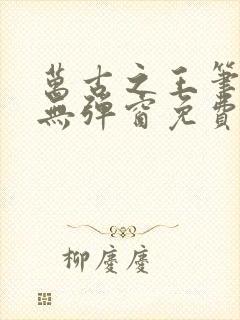 萬古之王筆
無彈窗免費
柳慶慶